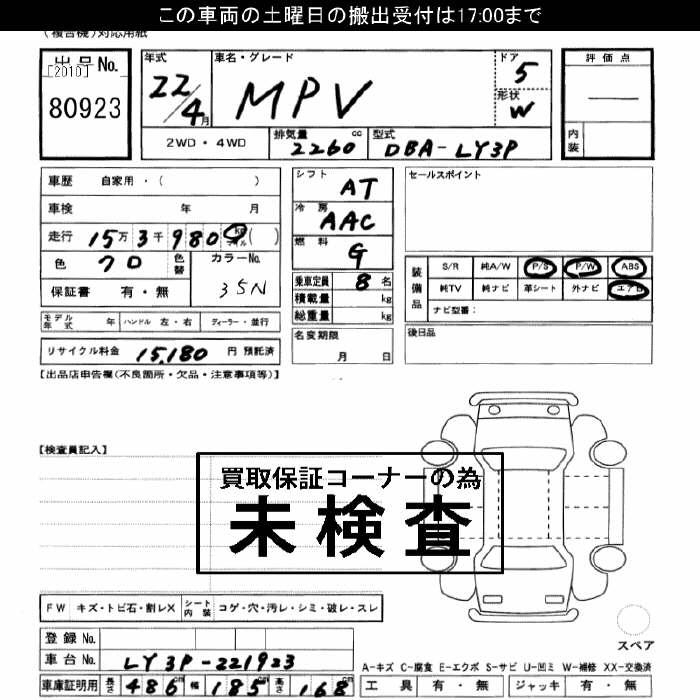 この車両の土曜日の搬出受付は17:00まで
(複合機)対応用紙
出品No.
[2010]
80923
年式
22/4月
車名・グレード
MPV
ドア
5
形状
W
評価点
―
内装
2WD・4WD
排気量 cc
2260
型式
DBA-LY3P
車歴 自家用・( )
車検 年 月
走行 15万3千980 km マイル ( )
色 クロ
色替
カラーNo.
35N
保証書 有・無
シフト
AT
冷房
AAC
燃料
G
乗車定員 8名
積載量 kg
総重量 kg
セールスポイント
装備品
S/R 純A/W P/S P/W ABS
純TV 純ナビ 革シート 外ナビ エアB
ナビ型番:
モデル年式 年 ハンドル 左・右 ディーラー・並行
名変期限
月 日
後日品
リサイクル料金 15,180 円 預託済
【出品店申告欄(不良箇所・欠品・注意事項等)】
【検査員記入】
買取保証コーナーの為
未検査
FW キズ・トビ石・割レX シート内装 コゲ・穴・汚レ・シミ・破レ・スレ
登録No.
車台No. LY3P-221923
車庫証明用 長さ 486cm 幅 185cm 高さ 168cm
スペア
A-キズ C-腐食 E-エクボ S-サビ U-凹ミ W-補修 XX-交換済
工具 有・無 ジャッキ 有・無